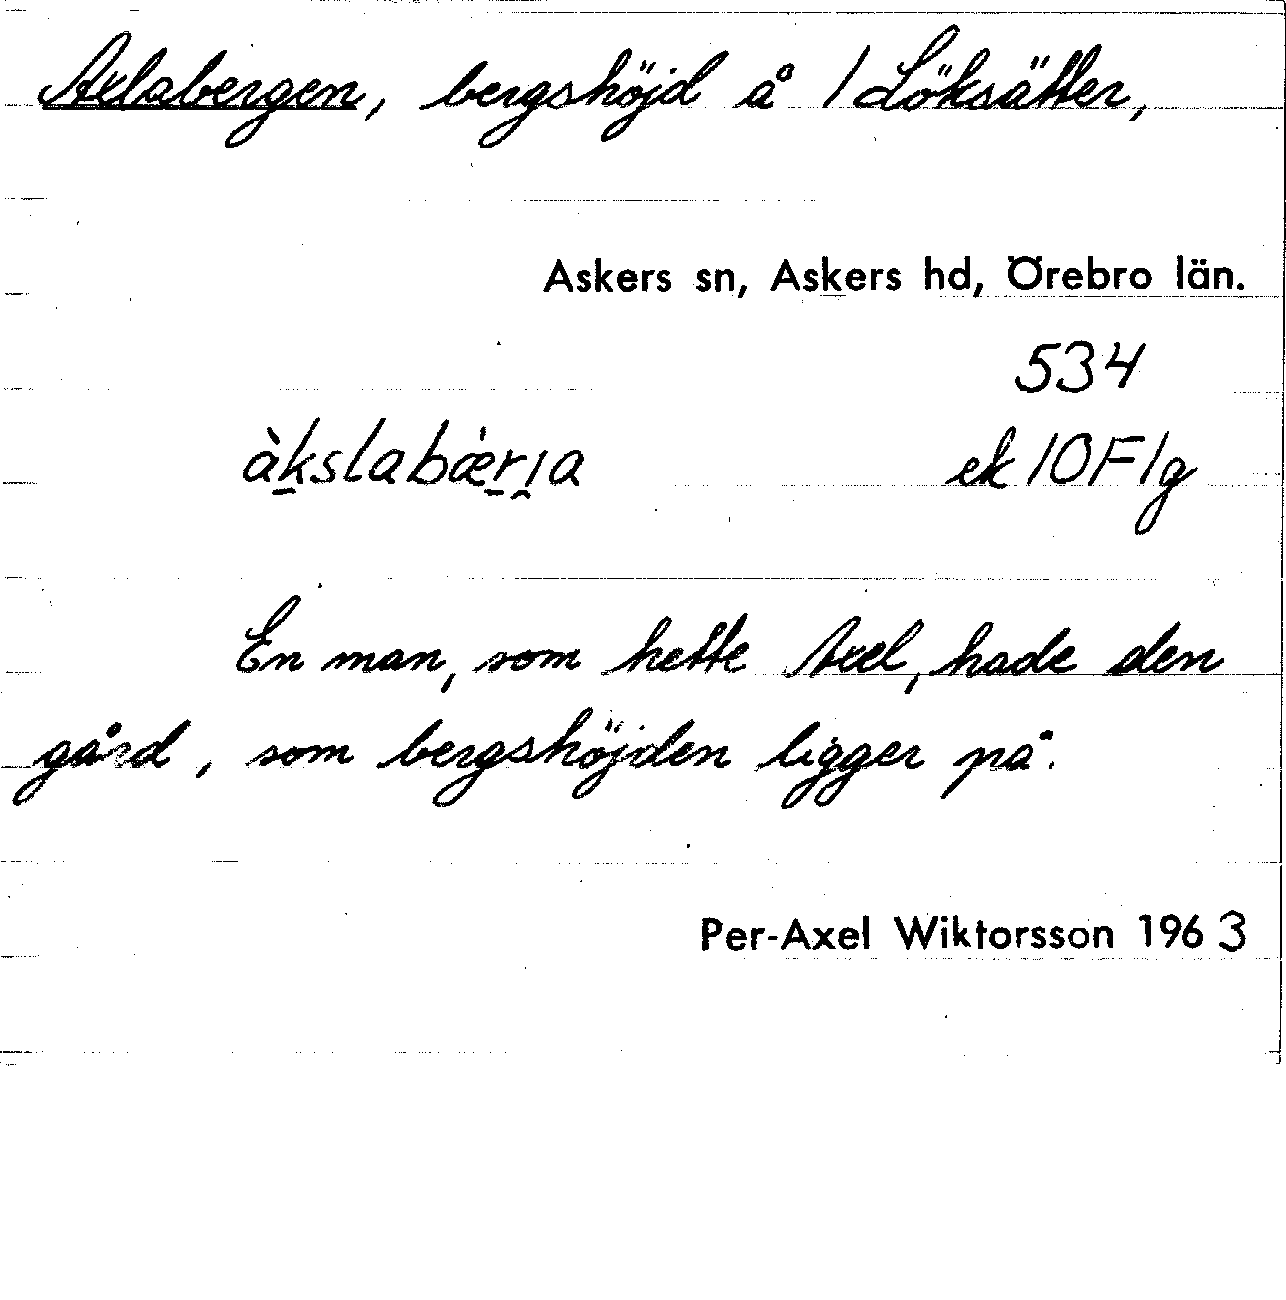 Axlabergen, bergshöjd å 1 Löksätter,
Askers sn, Askers hd, Örebro län.
534
àk̠slabæ̀r̠ı̯a ek 10F1g
En man, som hette Axel, hade den
gård, som bergshöjden ligger på.
Per-Axel Wiktorsson 1963